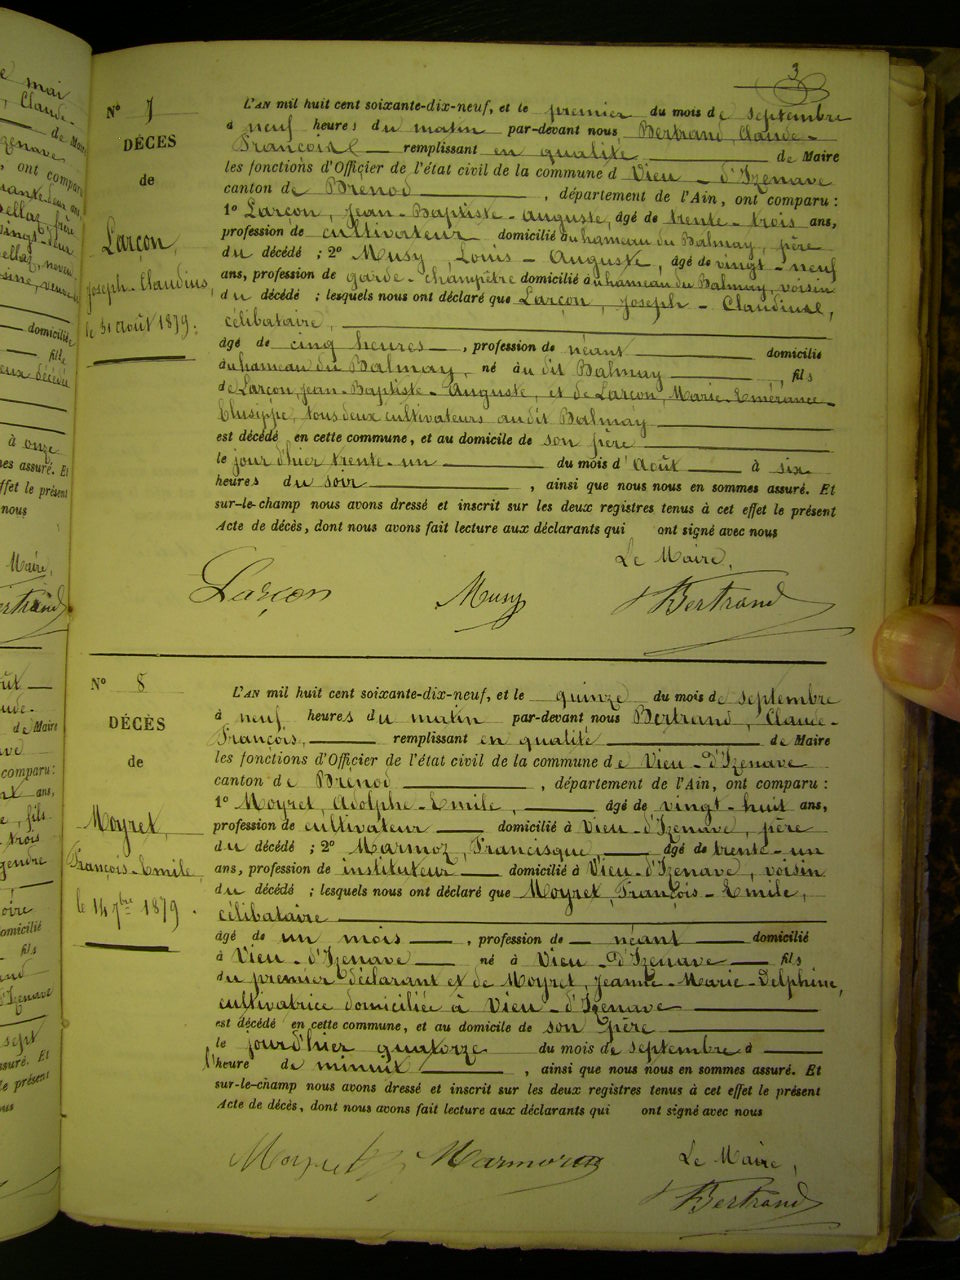 3
N° 7
DÉCÈS
de
Larçon,
Joseph-Claudius,
le 31 août 1879.
L'AN mil huit cent soixante-dix-neuf, et le premier du mois de septembre
à neuf heures du matin par-devant nous Bertrand, Claude-
François remplissant en qualité de Maire
les fonctions d'Officier de l'état civil de la commune d Vieu-d'Izenave
canton de Brenod, département de l'Ain, ont comparu :
1° Larçon, Jean-Baptiste-Auguste, âgé de trente-trois ans,
profession de cultivateur domicilié au hameau du Balmay, père
du décédé ; 2° Musy, Louis-Auguste, âgé de vingt-neuf
ans, profession de garde-champêtre domicilié au hameau du Balmay, voisin
du décédé ; lesquels nous ont déclaré que Larçon, Joseph-Claudius,
célibataire,
âgé de cinq heures, profession de néant domicilié
au hameau du Balmay, né au dit Balmay, fils
de Larçon, Jean-Baptiste-Auguste, et de Larçon, Marie-Emérance-
tous deux cultivateurs au dit Balmay
est décédé en cette commune, et au domicile de son père
le jour d'hier trente-un du mois d'août à six
heures du soir, ainsi que nous nous en sommes assuré. Et
sur-le-champ nous avons dressé et inscrit sur les deux registres tenus à cet effet le présent
Acte de décès, dont nous avons fait lecture aux déclarants qui ont signé avec nous
Le Maire,
Larçon Musy Bertrand
N° 8
DÉCÈS
de
Moyret,
François-Emile,
le 14 7bre 1879.
L'AN mil huit cent soixante-dix-neuf, et le quinze du mois de septembre
à neuf heures du matin par-devant nous Bertrand, Claude-
François, remplissant en qualité de Maire
les fonctions d'Officier de l'état civil de la commune de Vieu-d'Izenave
canton de Brenod, département de l'Ain, ont comparu :
1° Moyret, Adolphe-Emile, âgé de vingt-huit ans,
profession de cultivateur domicilié à Vieu-d'Izenave, père
du décédé ; 2° Marmoz, Francisque âgé de trente-un
ans, profession de instituteur domicilié à Vieu-d'Izenave, voisin
du décédé ; lesquels nous ont déclaré que Moyret, François-Emile,
célibataire
âgé de un mois, profession de néant domicilié
à Vieu-d'Izenave né à Vieu-d'Izenave fils
du premier déclarant et de Moyret, Jeanne-Marie-Delphine,
cultivatrice domiciliée à Vieu-d'Izenave
est décédé en cette commune, et au domicile de son père
le jour d'hier quatorze du mois de septembre à
l'heure de minuit, ainsi que nous nous en sommes assuré. Et
sur-le-champ nous avons dressé et inscrit sur les deux registres tenus à cet effet le présent
Acte de décès, dont nous avons fait lecture aux déclarants qui ont signé avec nous
Le Maire,
Moyret Bertrand